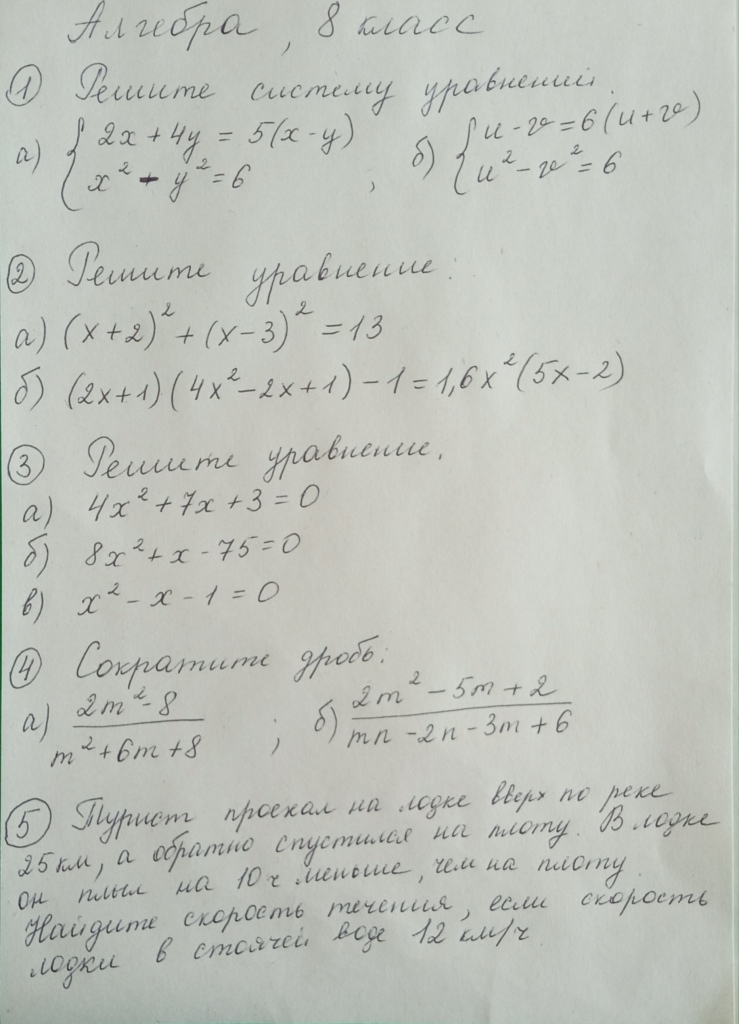 Алгебра, 8 класс
① Решите систему уравнений.
а) { 2x + 4y = 5(x - y)
x² - y² = 6 ,
б) { u - v = 6(u + v)
u² - v² = 6
② Решите уравнение:
а) (x + 2)² + (x - 3)² = 13
б) (2x + 1)(4x² - 2x + 1) - 1 = 1,6x²(5x - 2)
③ Решите уравнение.
а) 4x² + 7x + 3 = 0
б) 8x² + x - 75 = 0
в) x² - x - 1 = 0
④ Сократите дробь:
а) (2m² - 8)/(m² + 6m + 8) ; б) (2m² - 5m + 2)/(mn - 2n - 3m + 6)
⑤ Турист проехал на лодке вверх по реке
25 км, а обратно спустился на плоту. В лодке
он плыл на 10 ч меньше, чем на плоту.
Найдите скорость течения, если скорость
лодки в стоячей воде 12 км/ч